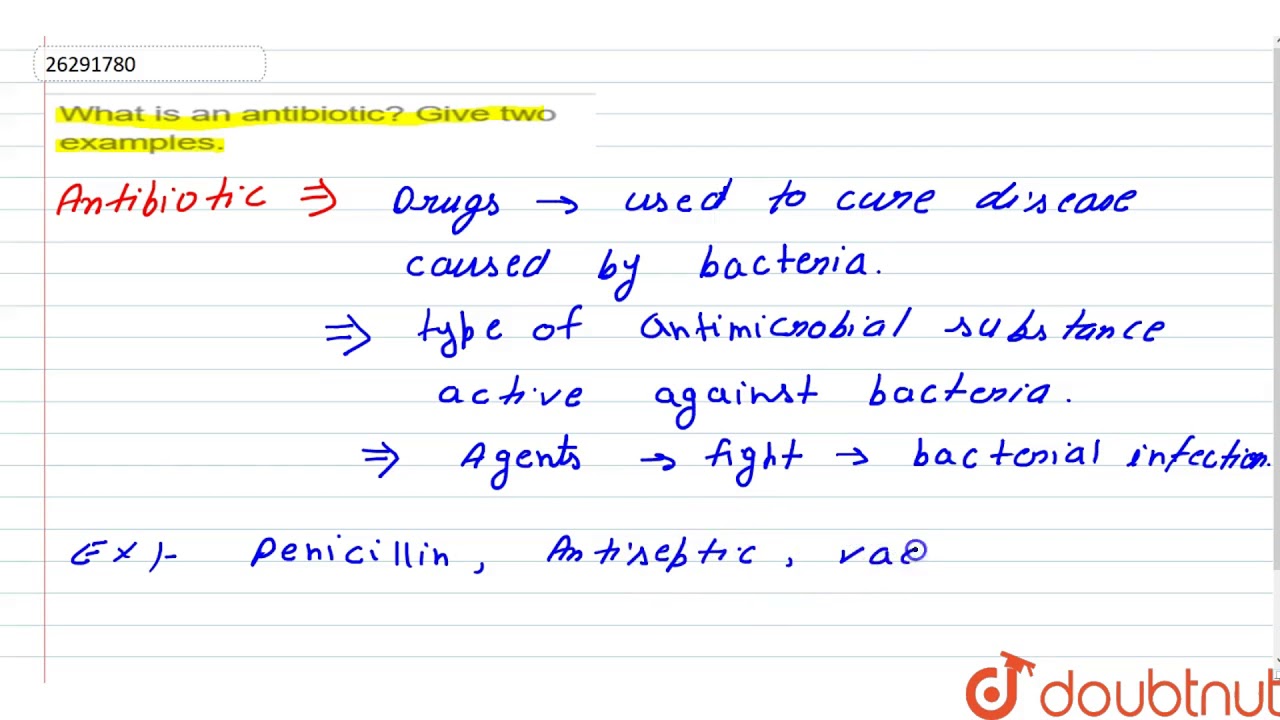 26291780
What is an antibiotic? Give two
examples.
Antibiotic ⇒ Drugs → used to cure disease
caused by bacteria.
⇒ type of antimicrobial substance
active against bacteria.
⇒ Agents → fight → bacterial infection.
Ex:- Penicillin, Antiseptic, vac
doubtnut